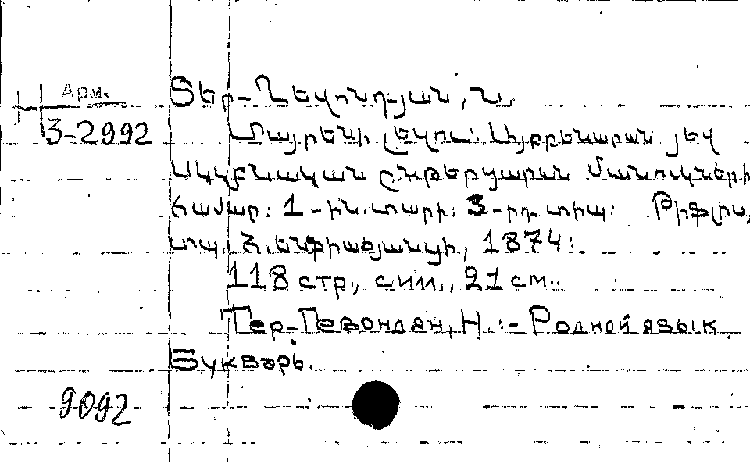 Арм.
Տեր-Ղևոնդյան, Ն.
3-2992
Մայրենի լեզու: Այբբենարան յեվ
սկզբնական ընթերցարան մանուկների
համար: 1-ին տարի: 3-րդ տիպ: Թիֆլիս,
տպ. Հ. Ենֆիաջյանցի, 1874:
118 стр., илл., 21 см.
Тер-Гевондян, Н.:- Родной язык.
Букварь.
9092